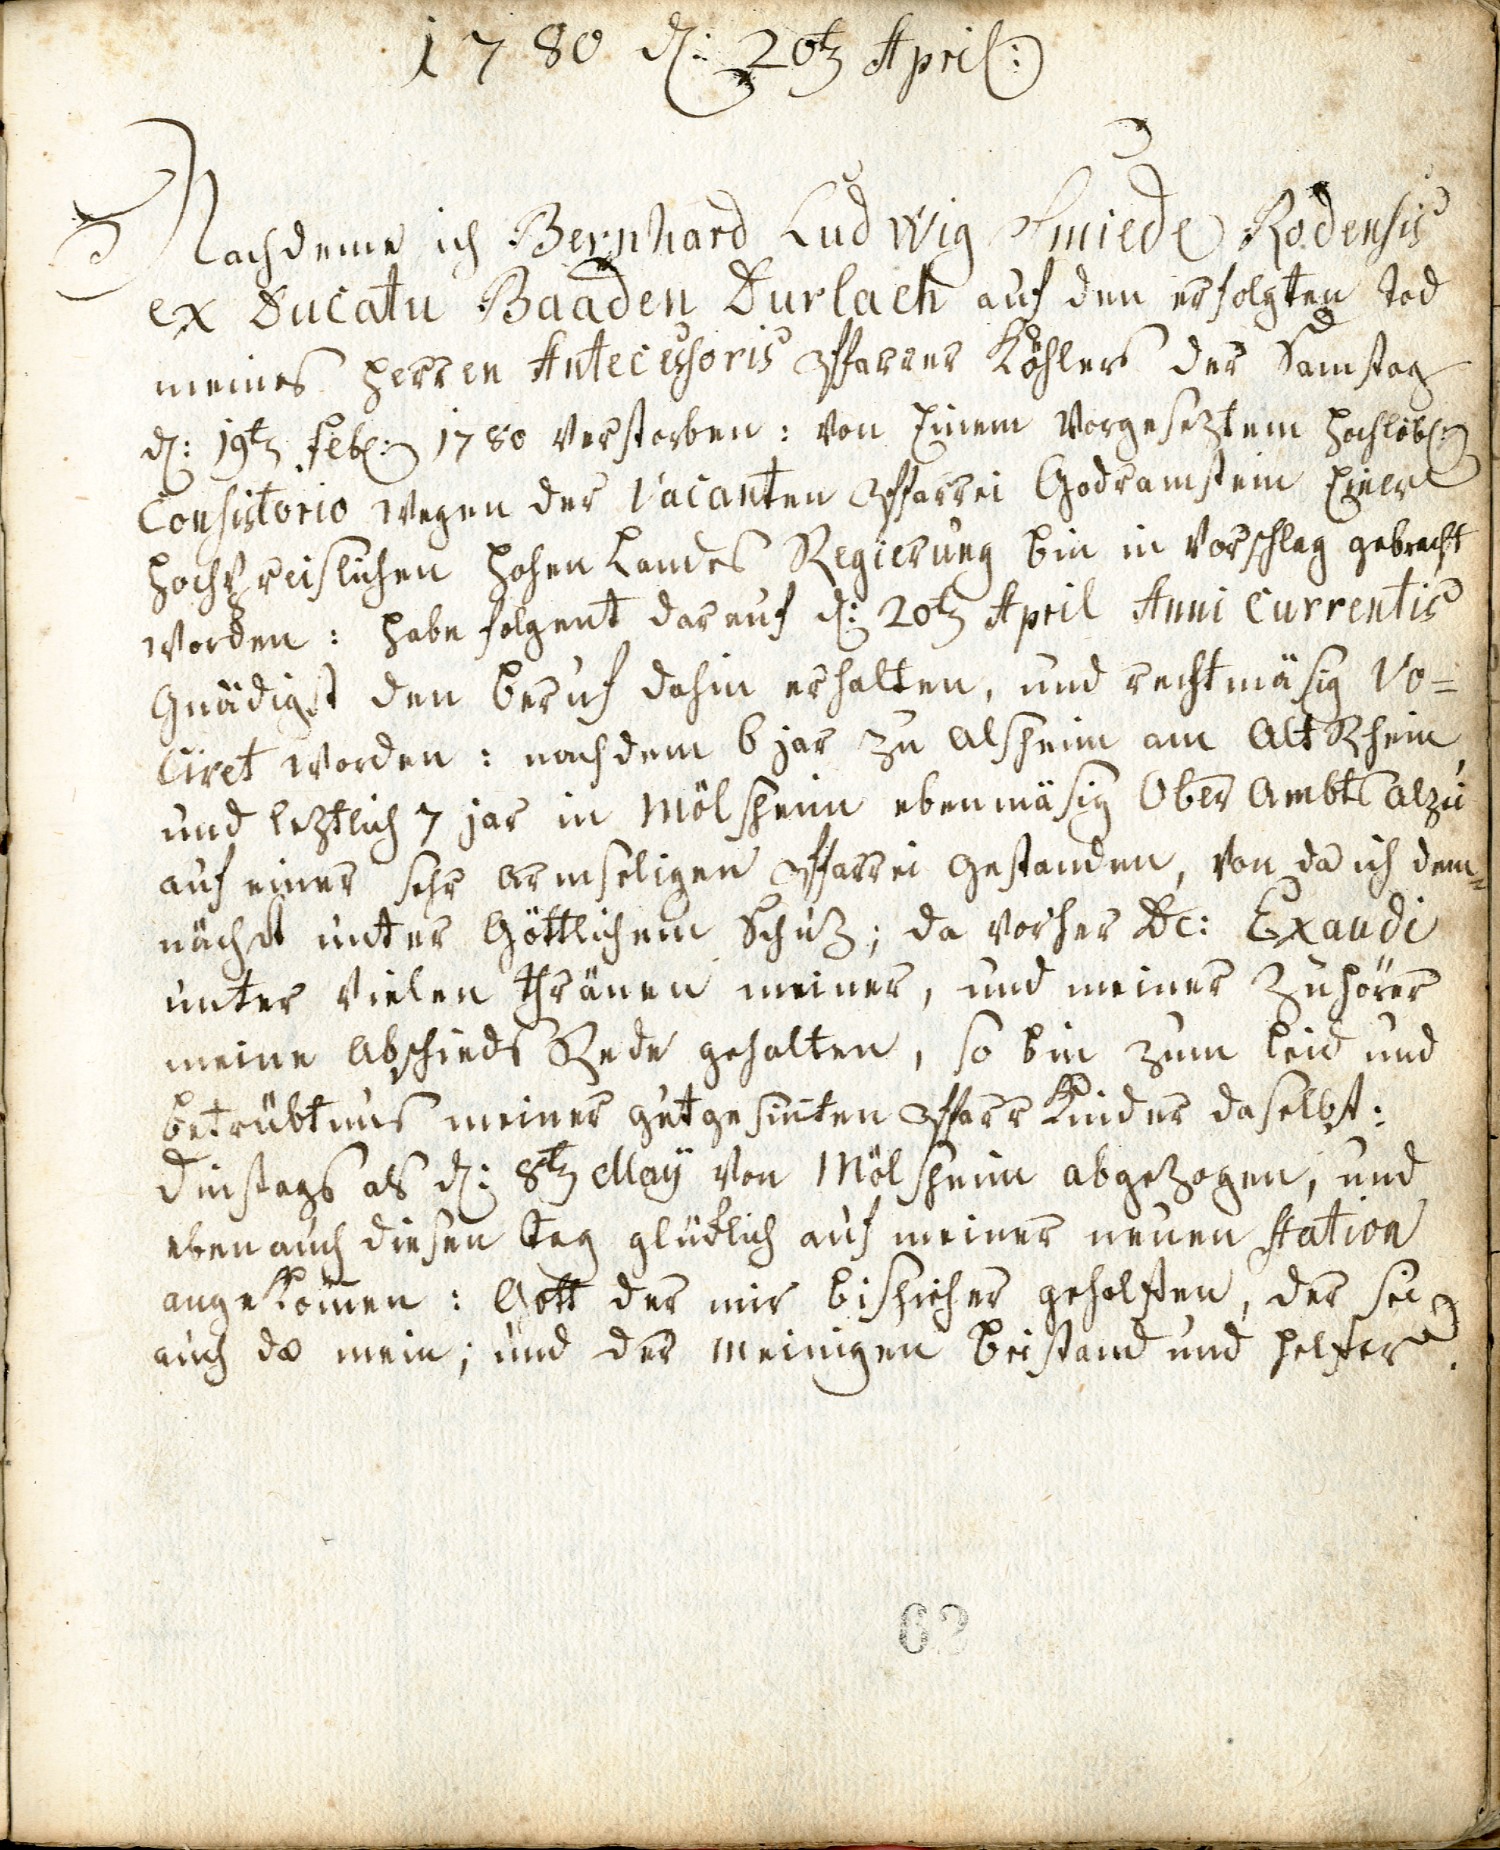 1780 d: 20tz April:
Nachdeme ich Bernhard Ludwig Smiede Rodensis
ex Ducatu Baaden Durlach auf den erfolgten Tod
meines Herren Antecessoris Pfarrer Köhlers der Samstag
d: 19tz Feb: 1780 verstorben: von Einem Vorgeseztem Hochlöbl:
Consistorio wegen der vacanten Pfarrei Godramstein Einer
Hochpreislichen Hohen Landes Regierung bin in Vorschlag gebracht
worden: habe folgent darauf d: 20tz April Anni Currentis
Gnädigst den Beruf dahin erhalten, und rechtmäsig vo=
ciret worden: nachdem 6 jar zu Alsheim am Alt Rhein,
und leztlich 7 jar in Mölsheim ebenmäsig Ober Ambts Alzei
auf einer sehr armseligen Pfarrei gestanden, von da ich dem=
nächst unter Göttlichem Schuz; da vorher Dc: Exaudi
unter vielen thränen meiner, und meiner Zuhörer
meine Abschieds Rede gehalten, so bin zum leid und
betrübtnus meiner gutgesinten Pfarr Kinder daselbst:
Dinstags als d: 8tz May von Mölsheim abgezogen, und
eben auch diesen Tag glücklich auf meiner neuen Station
angekomen: Gott der mir bishieher geholffen, der sei
auch da mein; und der meinigen Beistand und Helfer.
62